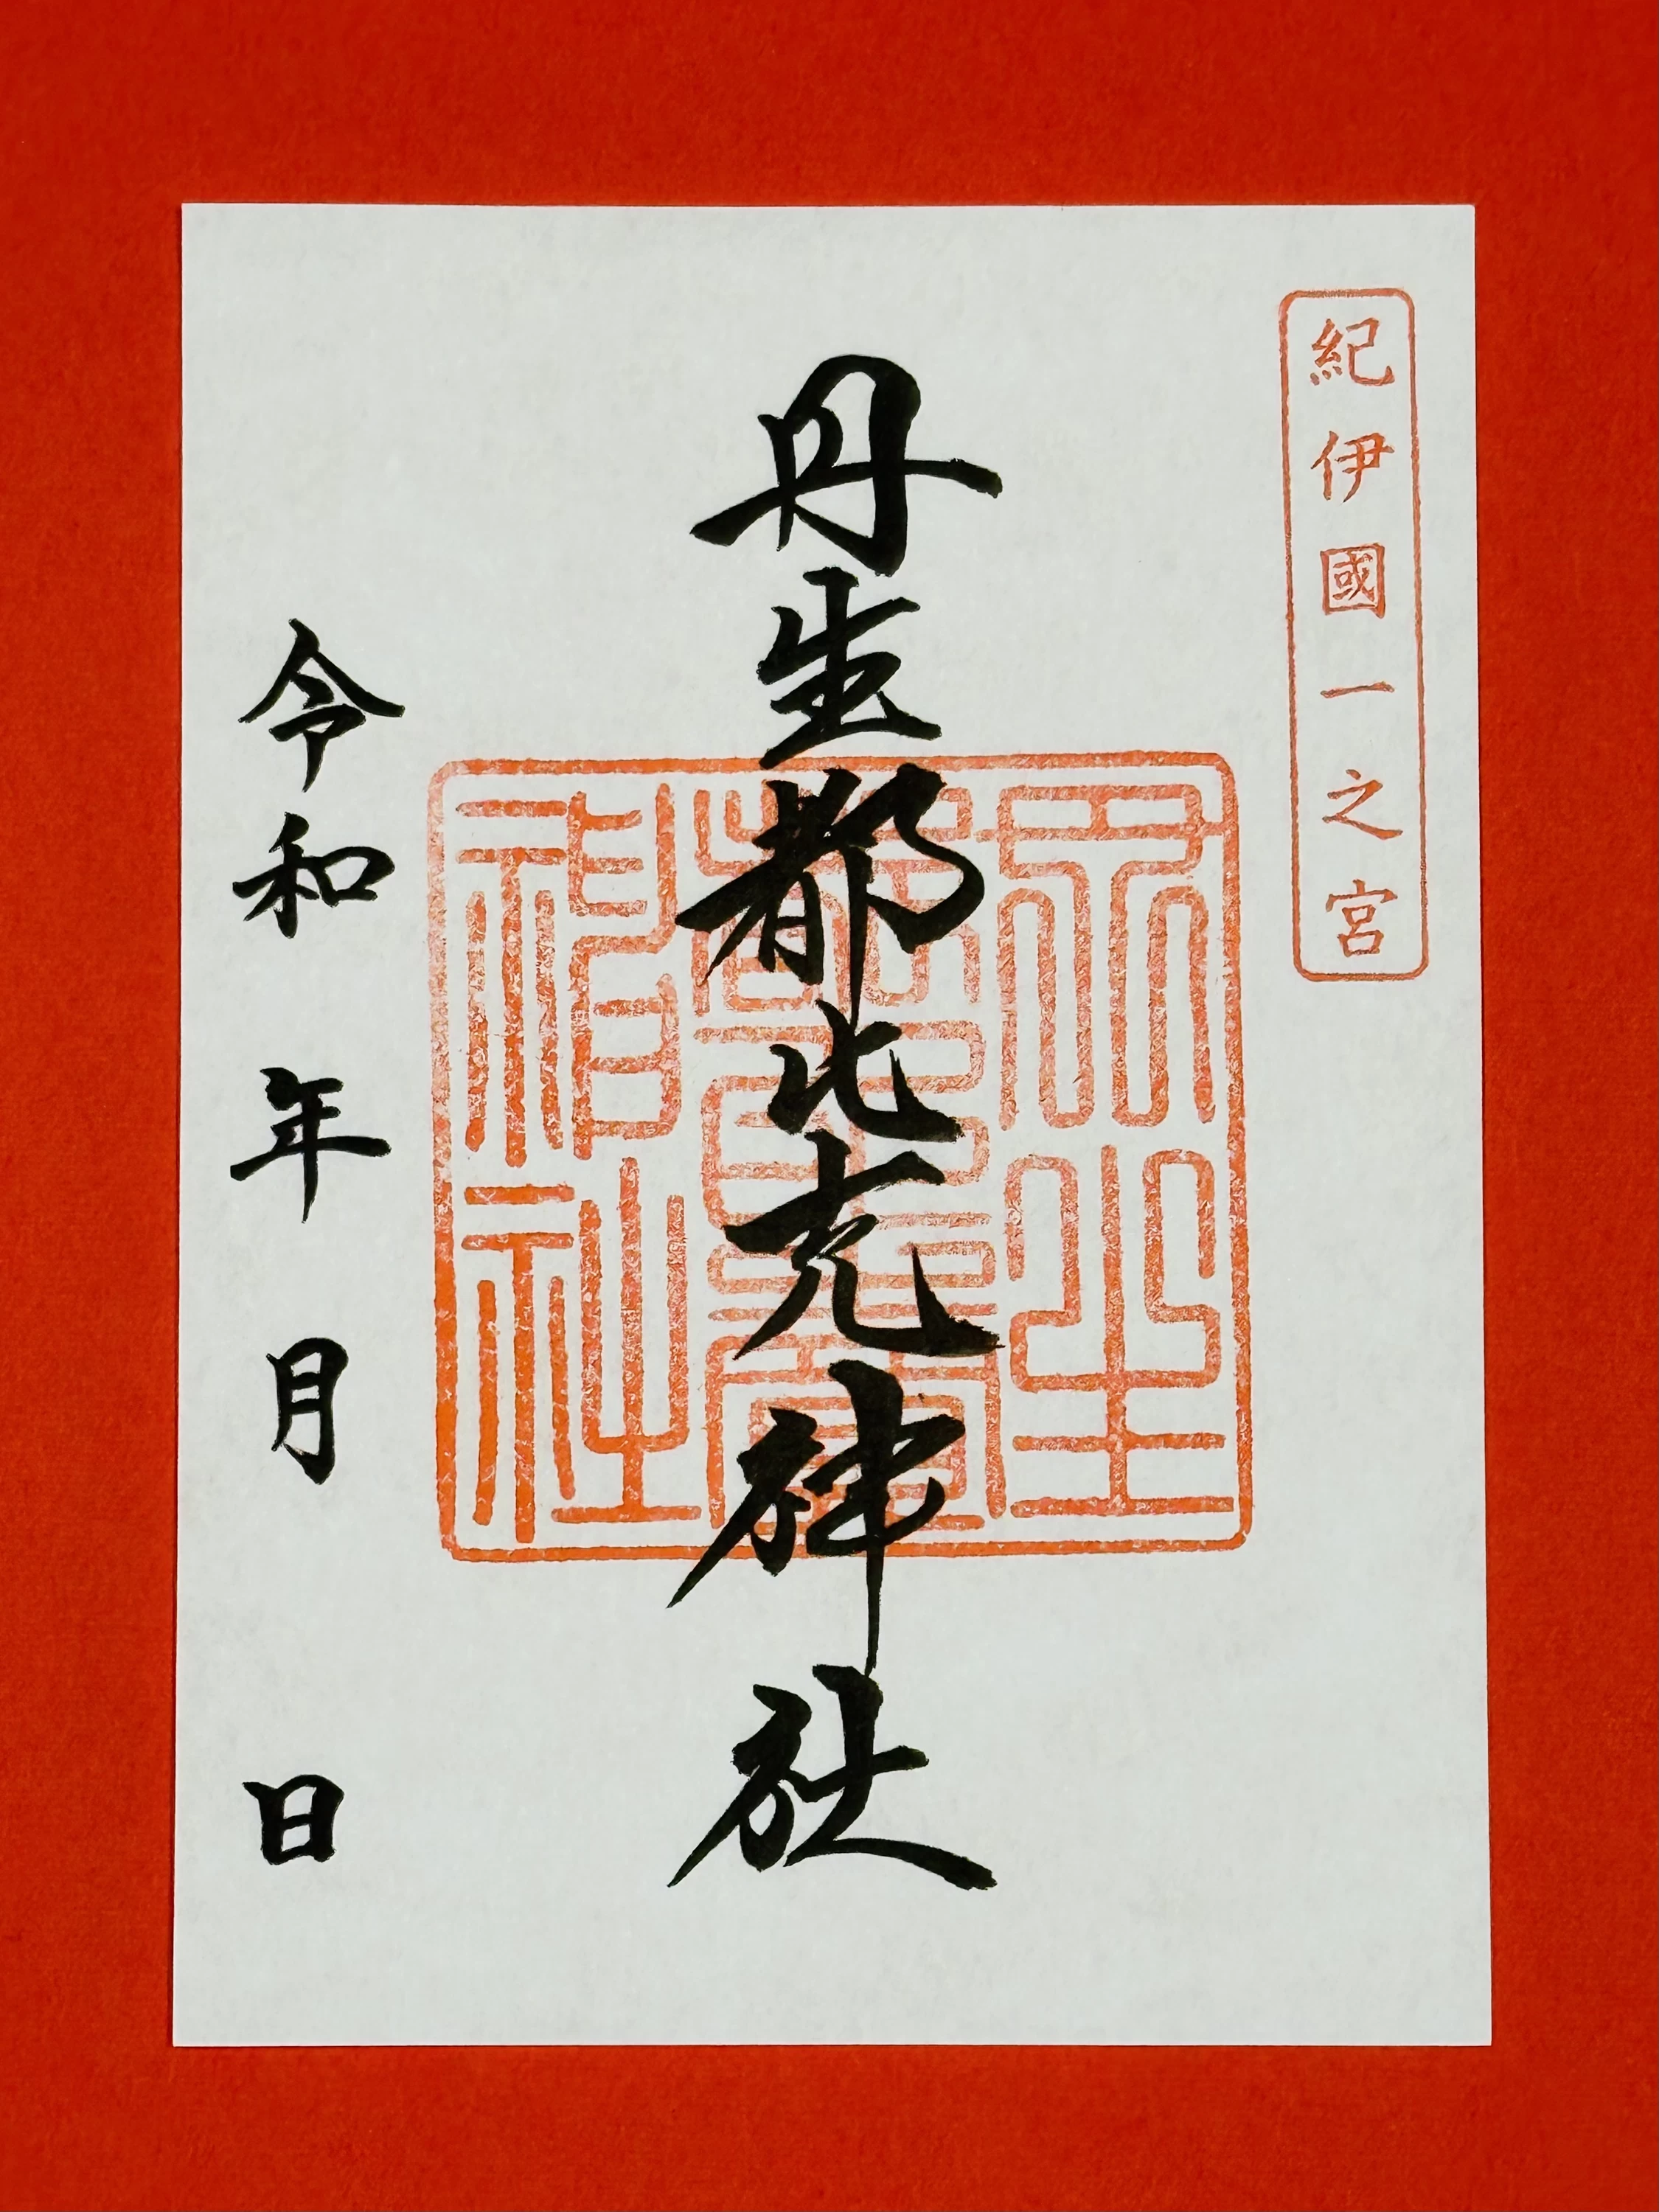 紀伊國一之宮
丹生都比売神社
丹生都比賣神社
令和 年 月 日